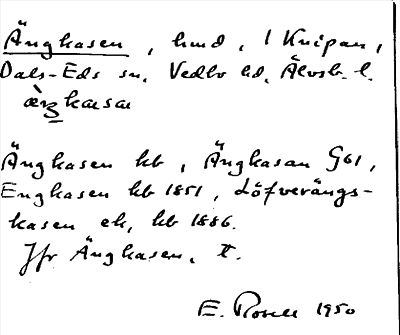 Ängkasen, hmd, i Knipan,
Dals-Eds sn, Vedbo hd, Älvsb. l.
Ängkasen kb, Ängkasan G61,
Engkasen kb 1851, Löfverängs-
kasen ek, kb 1886.
Jfr Ängkasen, t.
E. Rosell 1950